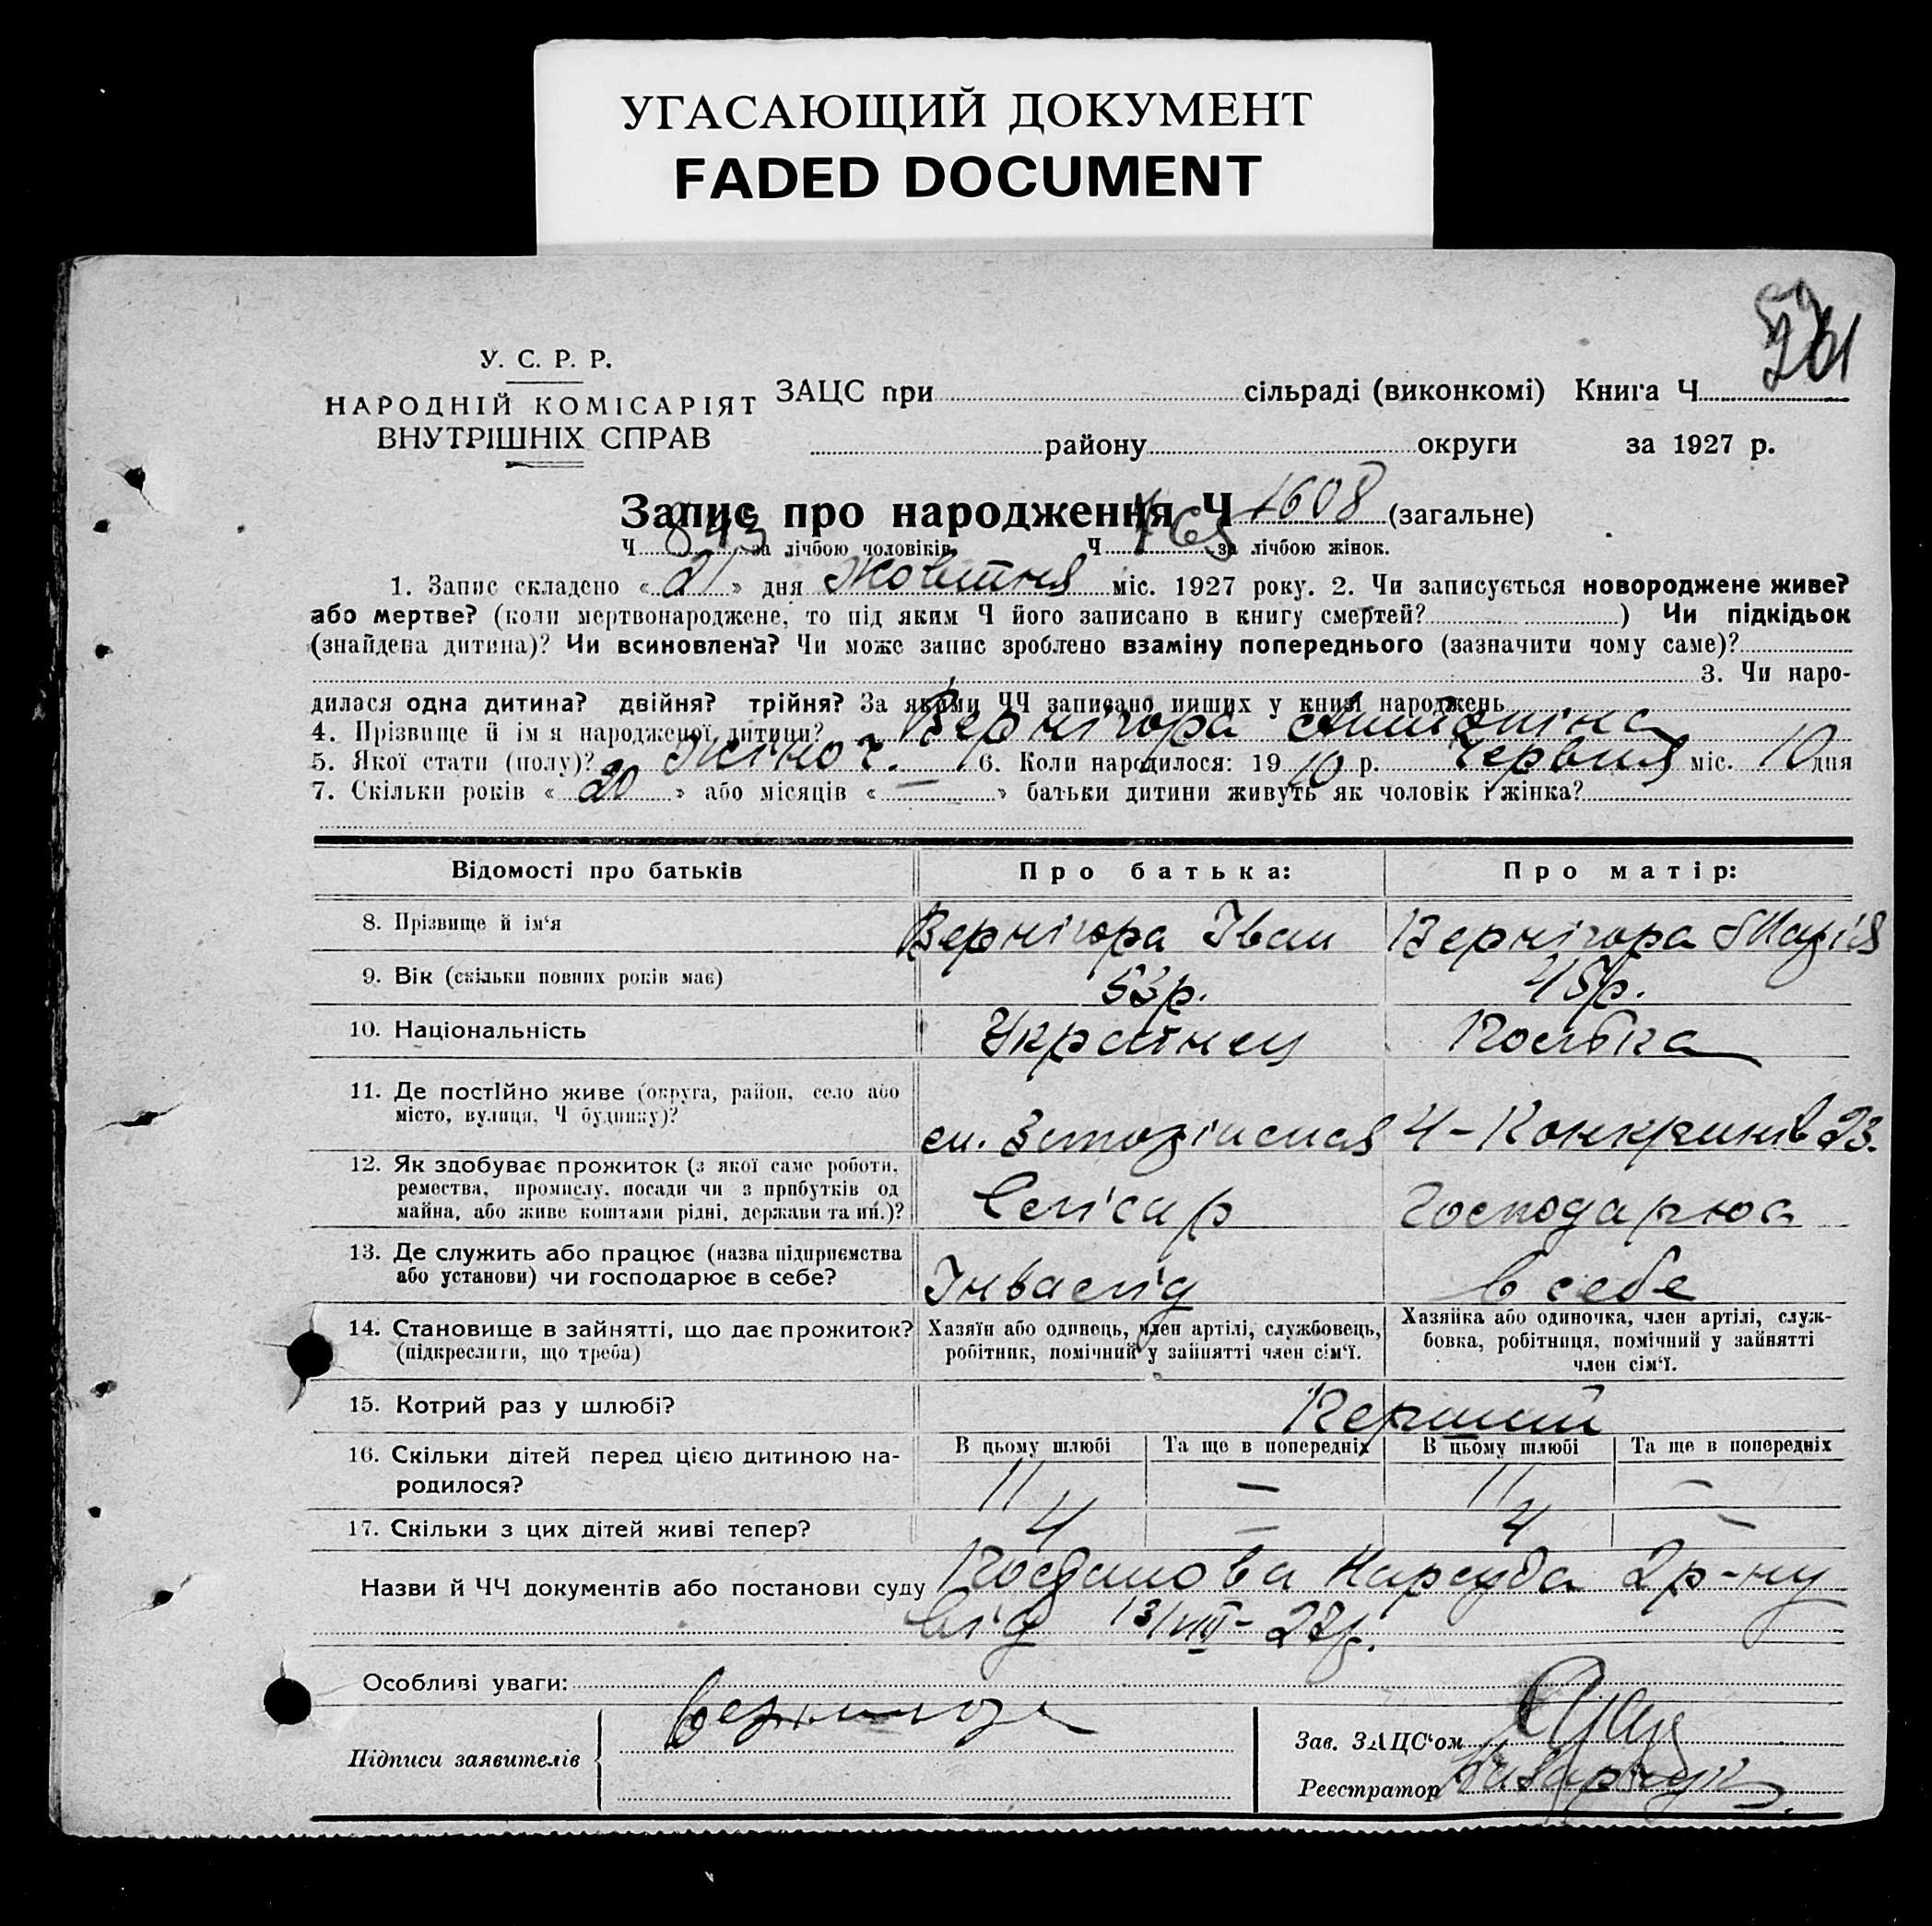 УГАСАЮЩИЙ ДОКУМЕНТ
FADED DOCUMENT
У. С. Р. Р.
НАРОДНІЙ КОМІСАРІЯТ
ВНУТРІШНІХ СПРАВ
ЗАЦС при сільраді (виконкомі) Книга Ч
району округи за 1927 р.
Запис про народження Ч 1608 (загальне)
Ч 843 за лічбою чоловіків Ч 765 за лічбою жінок.
1. Запис складено « 21 » дня Жовтня міс. 1927 року. 2. Чи записується новороджене живе?
або мертве? (коли мертвонароджене, то під яким Ч його записано в книгу смертей? ) Чи підкідьок
(знайдена дитина)? Чи всиновлена? Чи може запис зроблено взаміну попереднього (зазначити чому саме)?
3. Чи наро-
дилася одна дитина? двійня? трійня? За якими ЧЧ записано инших у книзі народжень
4. Прізвище й ім я народженої дитини? Вернігора Антоніна
5. Якої стати (полу)? Жіноч. 6. Коли народилося: 19 10 р. Червня міс. 10 дня
7. Скільки років « 20 » або місяців « — » батьки дитини живуть як чоловік і жінка?
Відомості про батьків Про батька: Про матір:
8. Прізвище й ім'я Вернігора Іван Вернігора Марія
9. Вік (скільки повних років має) 53р. 45р.
10. Національність Українец Полька
11. Де постійно живе (округа, район, село або
місто, вулиця, Ч будинку)?
12. Як здобуває прожиток (з якої саме роботи, Слісар Господарюс
ремества, промислу, посади чи з прибутків од
майна, або живе коштами рідні, держави та ин.)?
13. Де служить або працює (назва підприємства Інвалід в себе
або установи) чи господарює в себе?
14. Становище в зайнятті, що дає прожиток? Хазяїн або одинець, член артілі, службовець, Хазяйка або одиночка, член артілі, служ-
(підкреслити, що треба) робітник, помічний у зайнятті член сім'ї. бовка, робітниця, помічний у зайнятті
член сім'ї.
15. Котрий раз у шлюбі? Перший
В цьому шлюбі Та ще в попередніх В цьому шлюбі Та ще в попередніх
16. Скільки дітей перед цією дитиною на- 11 — 11 —
родилося?
17. Скільки з цих дітей живі тепер? 4 — 4 —
Назви й ЧЧ документів або постанови суду Постанова Нарсуда 2р-ну
від 13/VIII-27р.
Особливі уваги:
Підписи заявителів
Зав. ЗАЦС'ом
Реєстратор